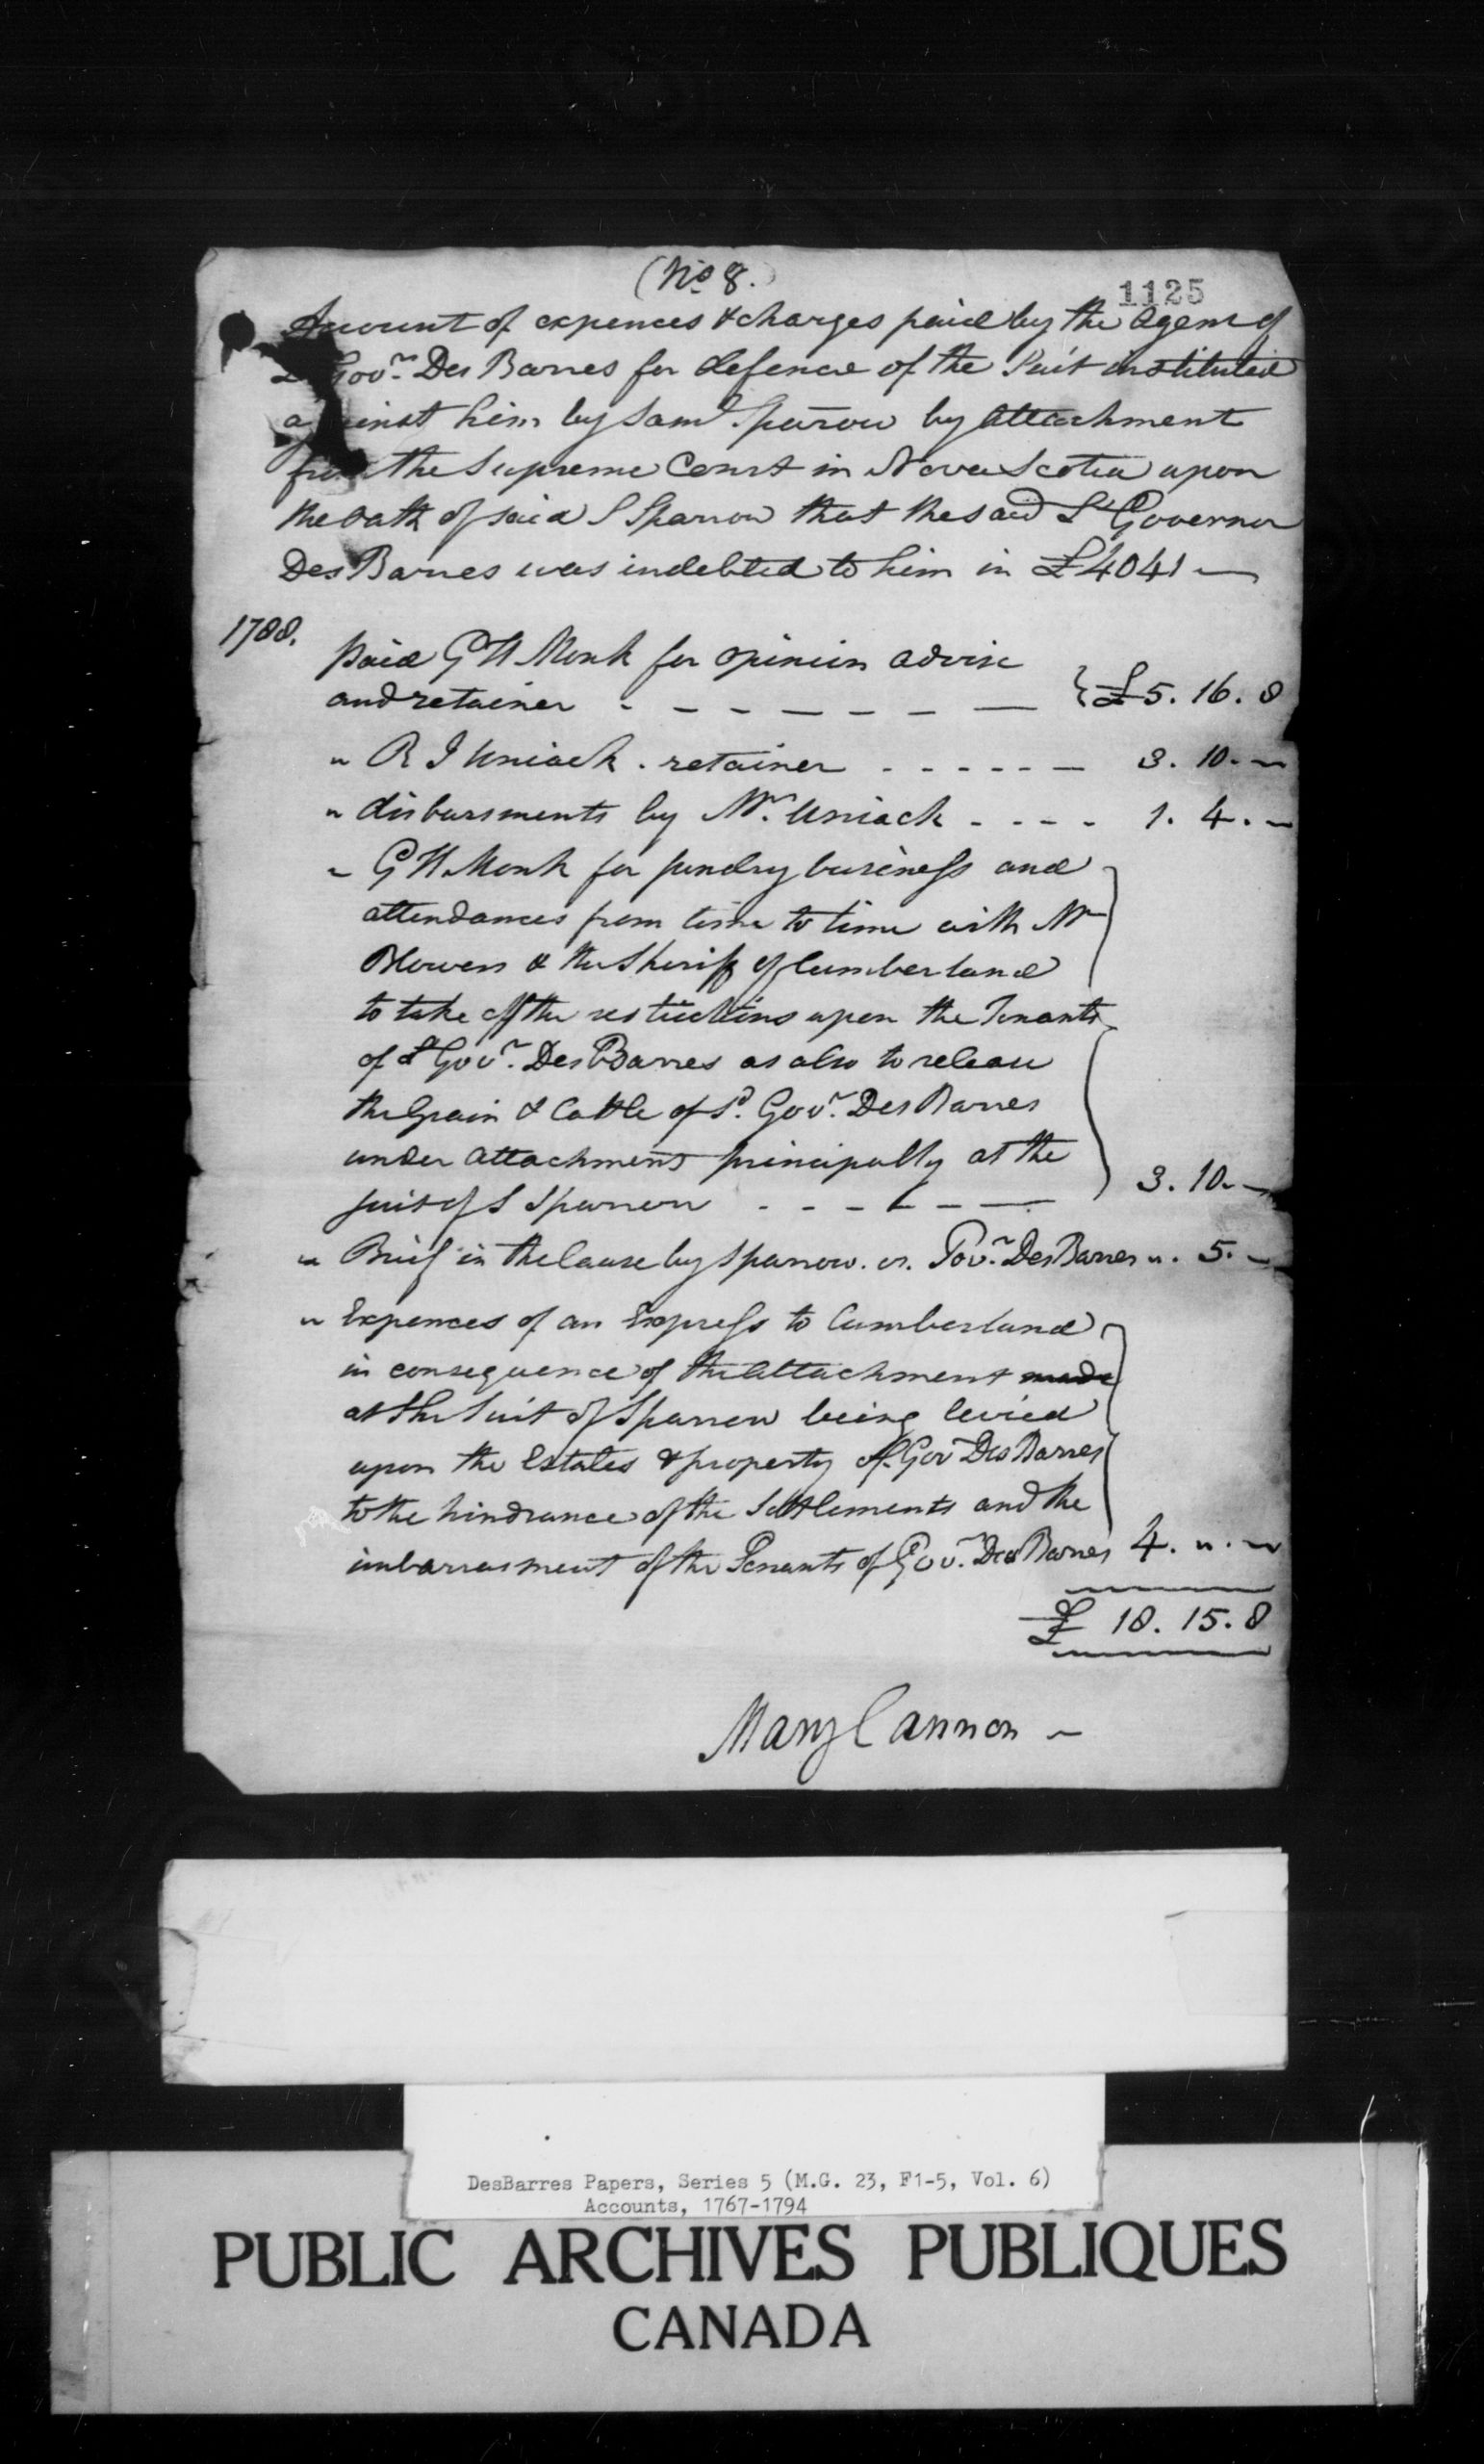 (No 8.)
1125
Account of expences & charges paid by the Agent of
Lt Govr. Des Barres for defence of the Suit instituted
against him by Saml Sparrow by Attachment
from the Supreme Court in Nova Scotia upon
the Oath of said S Sparrow that the said Lt Governor
Des Barres was indebted to him in £4041 —
1788.
paid G H Monk for opinion advise
and retainer - - - - - - - - } £5. 16. 8
" R J Uniack . retainer - - - - - - 3. 10. ~
" disbursments by Mr. Uniack - - - - 1. 4. ~
" G H Monk for sundry business and
attendances from time to time with Mr
Blowers & the Sheriff of Cumberland
to take off the restrictions upon the Tenants
of Lt Govr. DesBarres as also to release
the Grain & Cattle of Sd. Govr. DesBarres
under attachment principally at the
suit of S Sparrow - - - - - - 3. 10. —
" Brief in the Cause by Sparrow. vs. Govr. DesBarres ". 5. ~
" Expences of an Express to Cumberland
in consequence of the Attachment made
at the Suit of Sparrow being levied
upon the Estates & property of Govr DesBarres
to the hindrance of the Settlements and the
imbarrasment of the Tenants of Govr. DesBarres 4. ". ~
£ 18. 15. 8
Mary Cannon ~
DesBarres Papers, Series 5 (M.G. 23, F1-5, Vol. 6)
Accounts, 1767-1794
PUBLIC ARCHIVES PUBLIQUES
CANADA